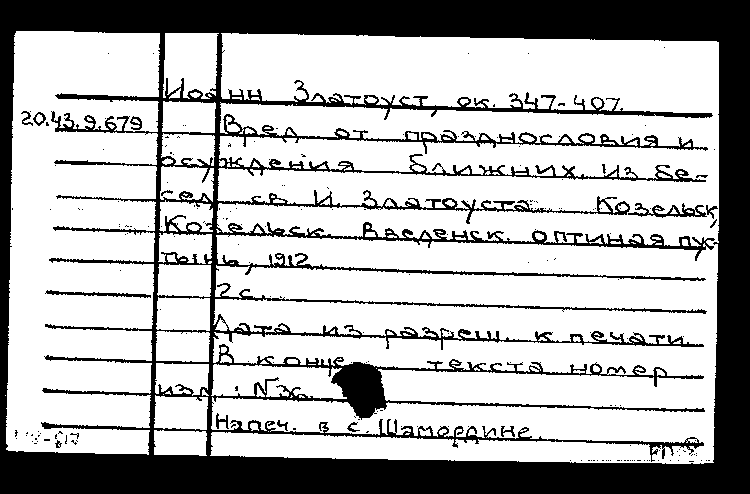 Иоанн Златоуст, ок. 347-407.
20.43.9.679 Вред от празднословия и
осуждения ближних. Из бе-
сед св. И. Златоуста. Козельск,
Козельск. Введенск. оптиная пус-
тынь, 1912.
2 с.
Дата из разреш. к печати.
В конце текста номер
изд.: №36.
Напеч. в с. Шамордине.